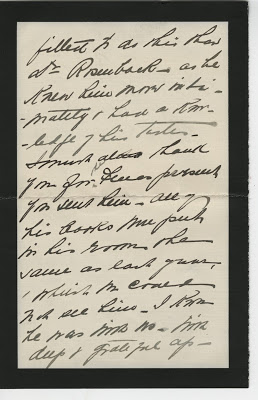 fitted to do this than
Dr. Rosenbach – as he
knew him more inti-
mately & had a know-
-ledge of his tastes –
I must also thank
you for presents
you sent him – all of
his books were put
in his room the
same as last year,
we could
not see him – I know
he was with us – With
deep & grateful ap-